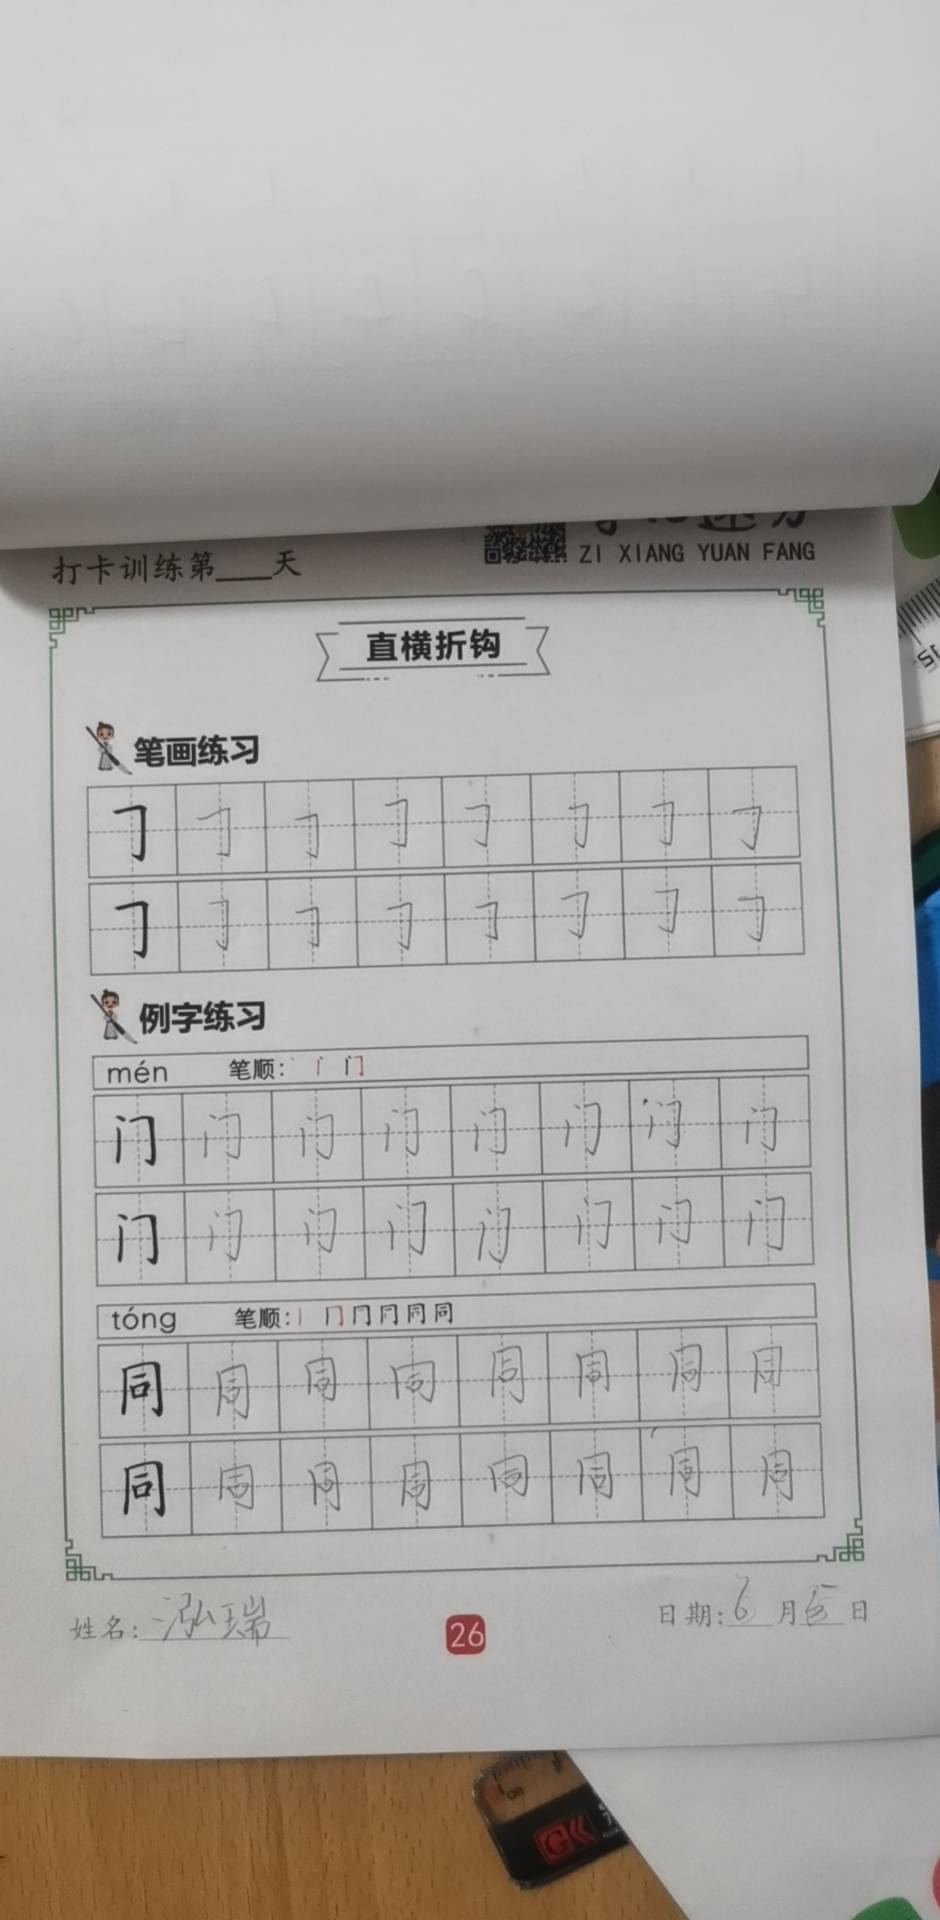 打卡训练第____天
ZI XIANG YUAN FANG
直横折钩
笔画练习
𠃌 𠃌 𠃌 𠃌 𠃌 𠃌 𠃌 𠃌
𠃌 𠃌 𠃌 𠃌 𠃌 𠃌 𠃌 𠃌
例字练习
mén 笔顺: 丶 门
门 门 门 门 门 门 门 门
门 门 门 门 门 门 门 门
tóng 笔顺: 丨 冂 冂 同 同
同 同 同 同 同 同 同 同
同 同 同 同 同 同 同 同
姓名: 泓瑞
26
日期: 6 月 日
15